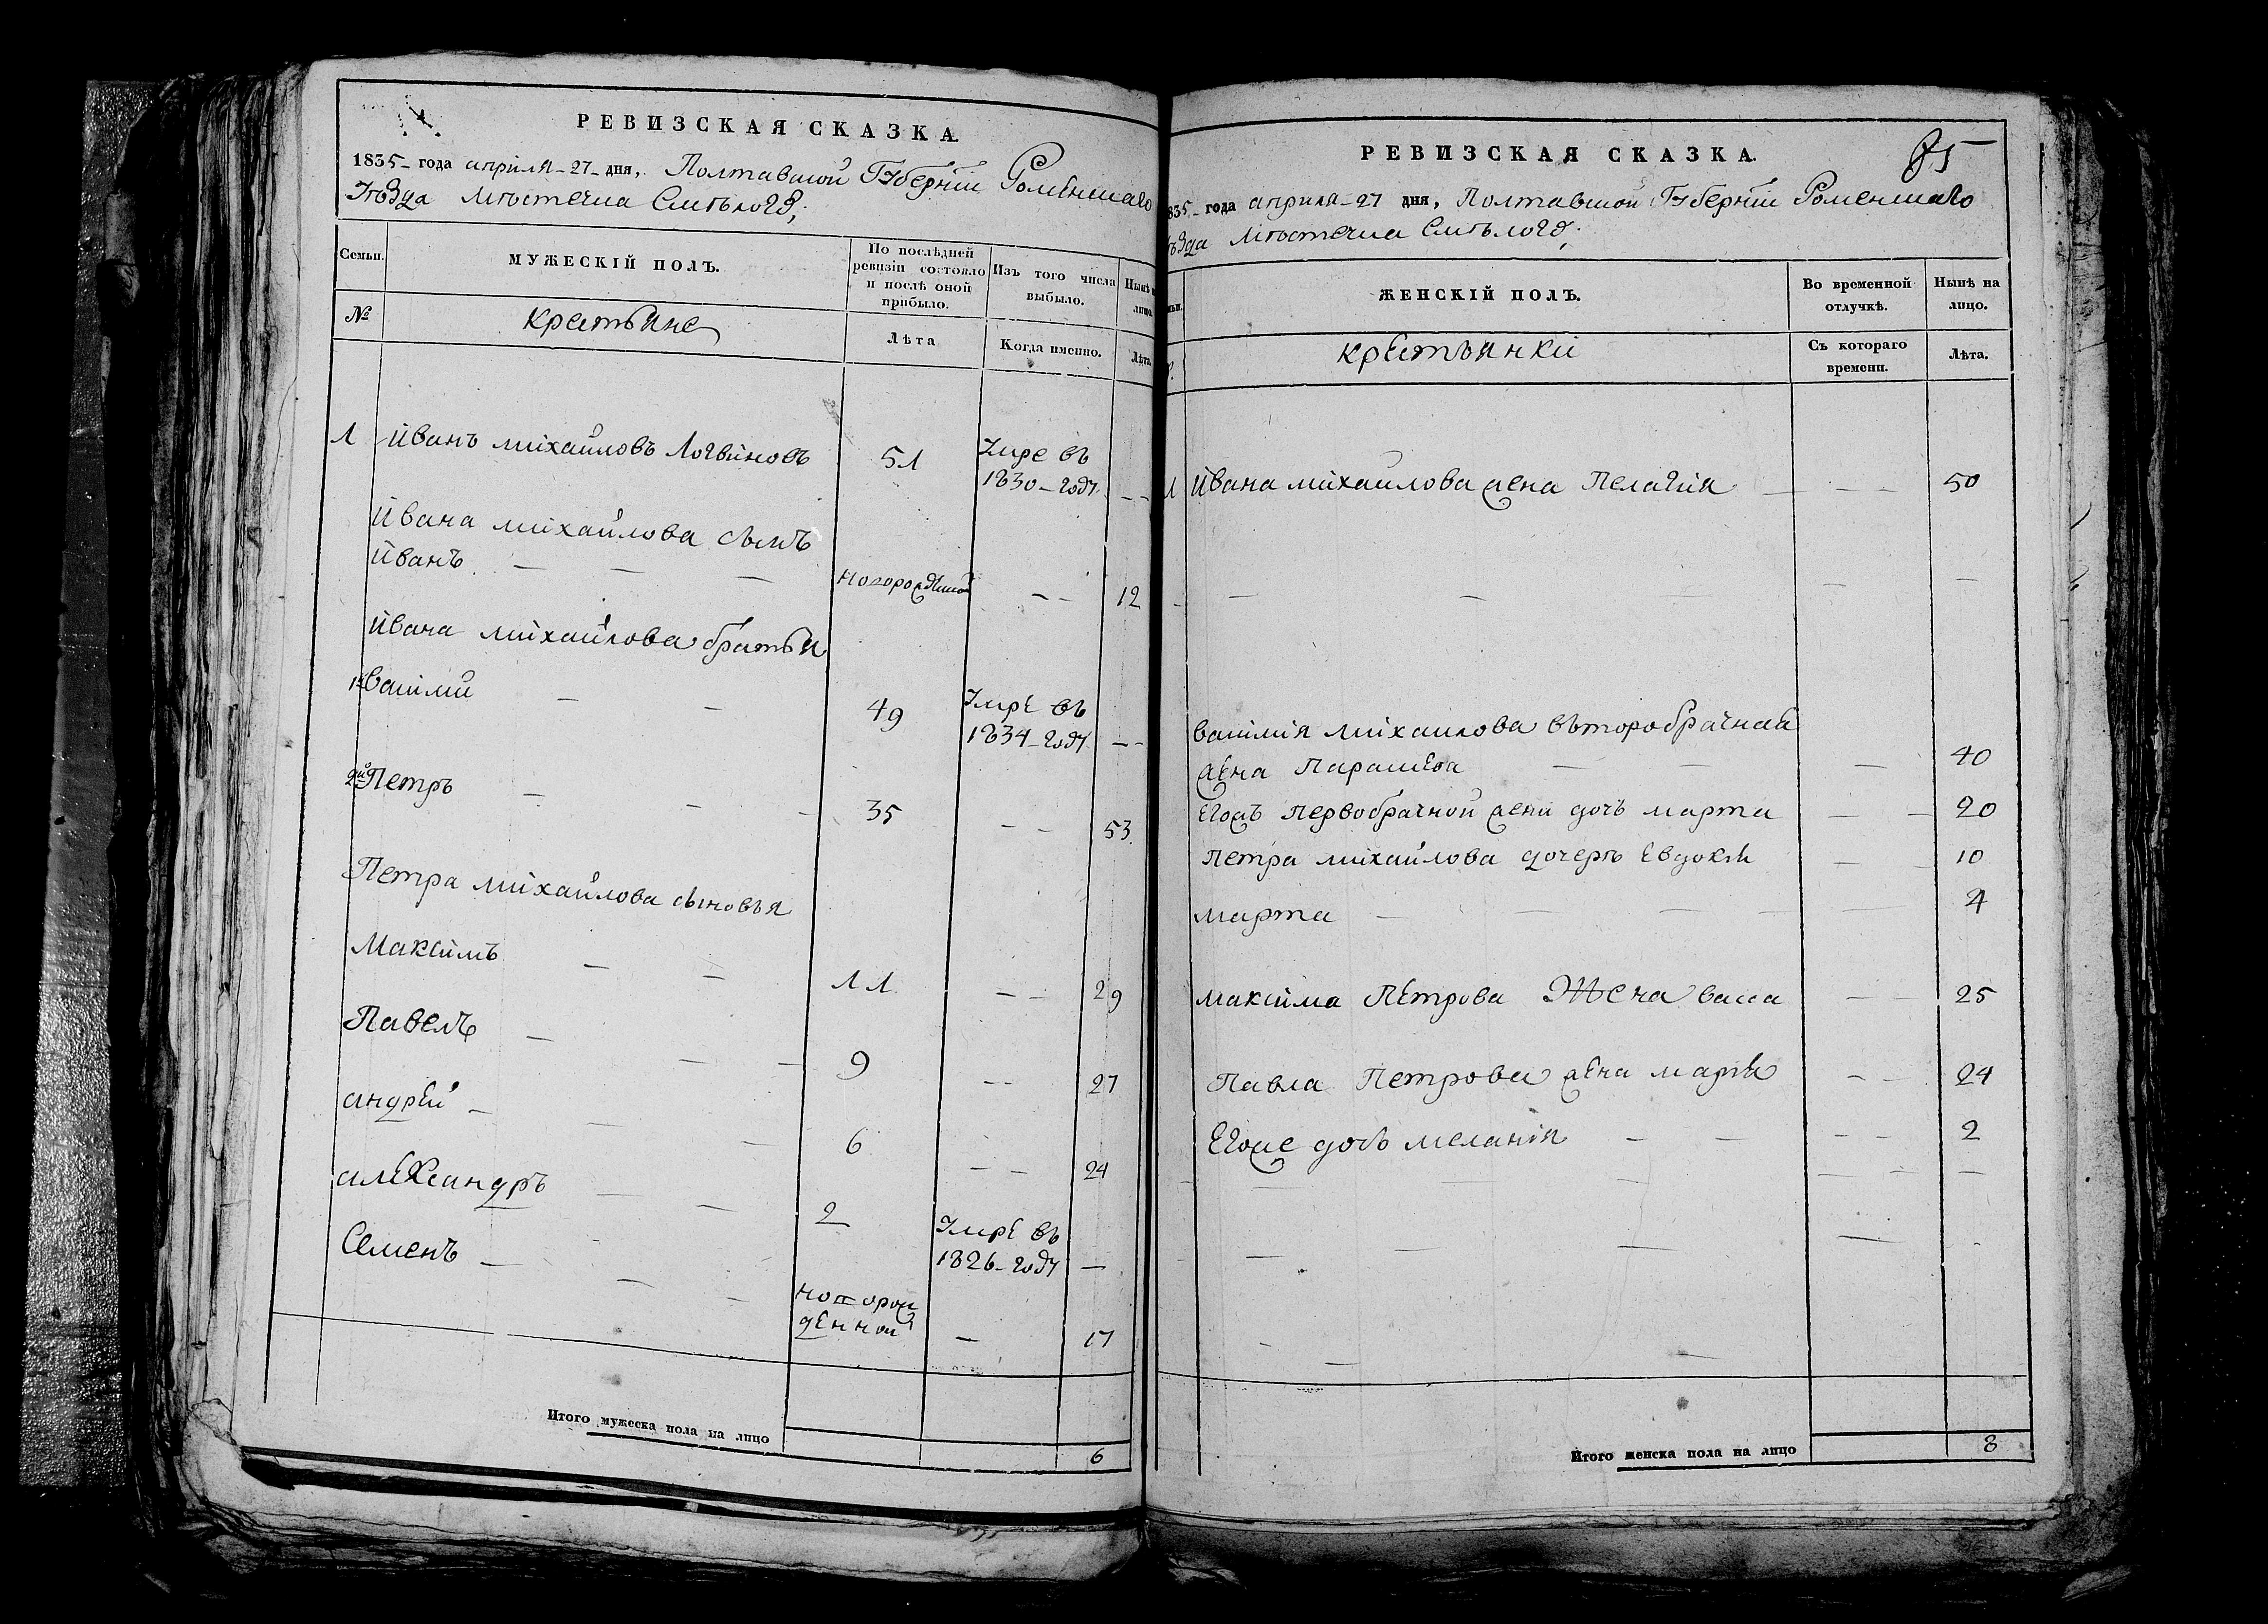 РЕВИЗСКАЯ СКАЗКА.
1835 года апріля 27 дня, Полтавской Губерніи Роменскаго
Уѣзда Мѣстечка Смѣлого;
Семьи.
МУЖЕСКІЙ ПОЛЪ.
По послѣдней ревизіи состояло и послѣ оной прибыло.
Изъ того числа выбыло.
Нынѣ на лицо.
№
крестьяне
Лѣта
Когда именно.
Лѣта.
1 Иванъ михайловъ Логвиновъ 51 Умре въ 1830 году
Ивана михайлова сынъ
Иванъ новорожденной 12
Ивана михайлова братья
1й Василий 49 Умре въ 1834 году
2й Петръ 35 53
Петра михайлова сыновья
Максимъ 11 29
Павелъ 9 27
андрей 6 24
александръ 2 Умре въ 1826 году
Семенъ новорожденной 17
Итого мужеска пола на лицо 6
РЕВИЗСКАЯ СКАЗКА.
85
835 года априля 27 дня, Полтавской Губерніи Роменскаго
ѣзда Мѣстечка Смѣлого;
ЖЕНСКІЙ ПОЛЪ.
Во временной отлучкѣ.
Нынѣ на лицо.
крестьянки
Съ котораго времени.
Лѣта.
1 Ивана михайлова жена Пелагия 50
василия михайлова второбрачная
жена Парасковия 40
Егожъ первобрачной жени дочь марта 20
Петра михайлова дочерь Евдокия 10
марта 4
максима Петрова Жена васса 25
Павла Петрова жена мария 24
Егоже дочь мелания 2
Итого женска пола на лицо 8